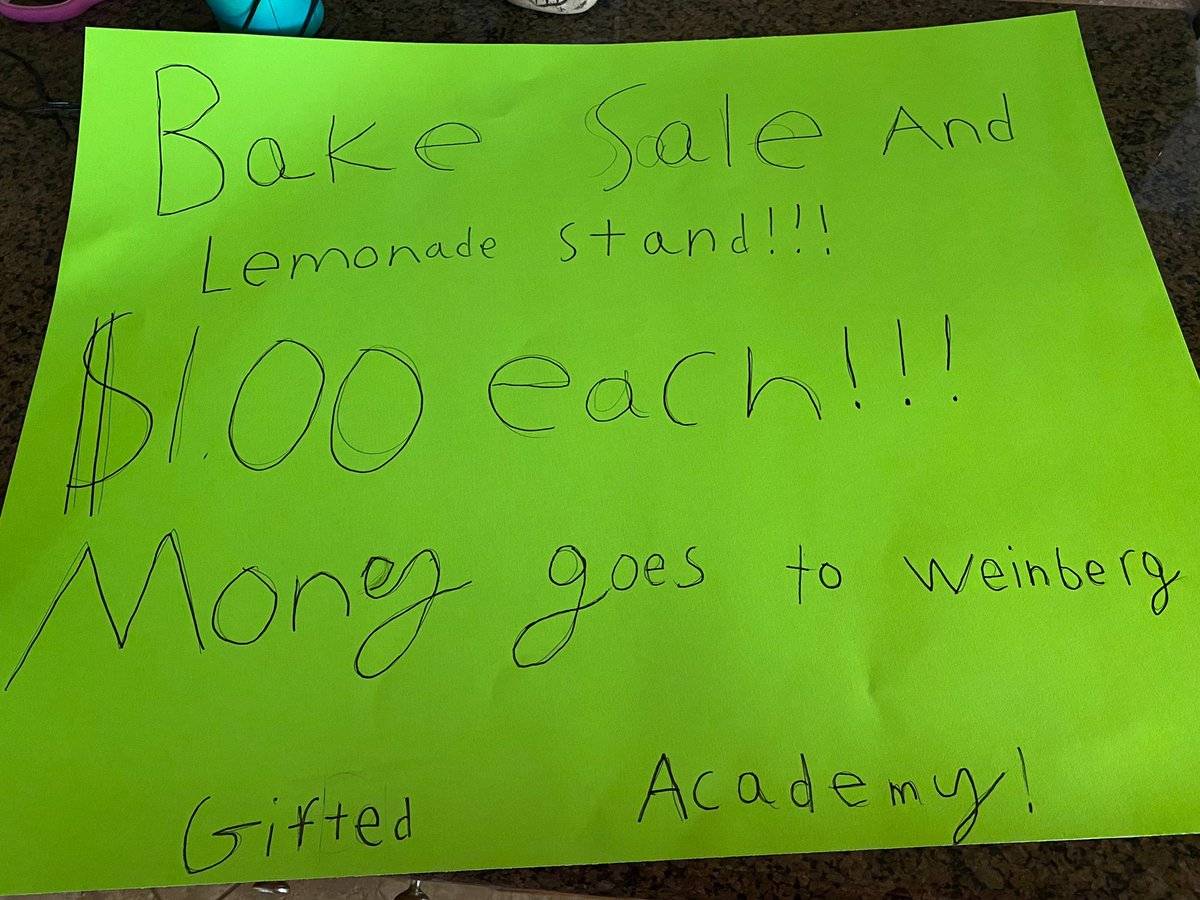 Bake Sale And
Lemonade stand!!!
$1.00 each!!!
Money goes to Weinberg
Gifted Academy!